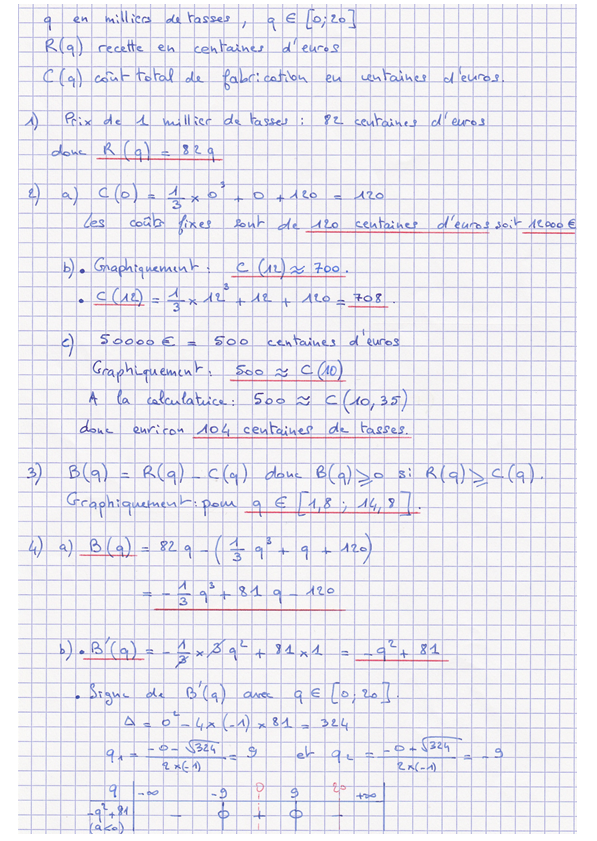 q en milliers de tasses, q ∈ [0;20]
R(q) recette en centaines d'euros
C(q) coût total de fabrication en centaines d'euros.
1) Prix de 1 millier de tasses : 82 centaines d'euros
donc R(q) = 82q
2) a) C(0) = 1/3 × 0³ + 0 + 120 = 120
Les coûts fixes sont de 120 centaines d'euros soit 12000 €
b) • Graphiquement : C(12) ≈ 700.
• C(12) = 1/3 × 12³ + 12 + 120 = 708.
c) 50000 € = 500 centaines d'euros
Graphiquement : 500 ≈ C(10)
A la calculatrice : 500 ≈ C(10,35)
donc environ 104 centaines de tasses.
3) B(q) = R(q) - C(q) donc B(q) ⩾ 0 si R(q) ⩾ C(q).
Graphiquement : pour q ∈ [1,8 ; 14,8].
4) a) B(q) = 82q - (1/3 q³ + q + 120)
= - 1/3 q³ + 81q - 120
b) • B'(q) = - 1/3 × 3q² + 81 × 1 = -q² + 81
• Signe de B'(q) avec q ∈ [0;20].
Δ = 0² - 4×(-1) × 81 = 324
q₁ = (-0-√324)/(2×(-1)) = 9 et q₂ = (-0+√324)/(2×(-1)) = -9
q -∞ -9 0 9 20 +∞
-q²+81 - 0 + 0 -
(a<0)